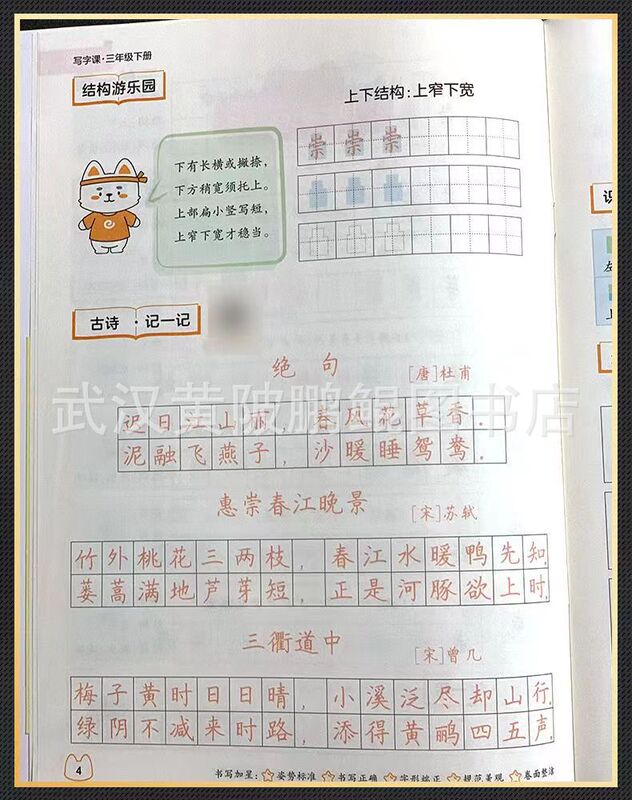 写字课·三年级下册
结构游乐园
上下结构：上窄下宽
下有长横或撇捺，
下方稍宽须托上。
上部扁小竖写短，
上窄下宽才稳当。
崇 崇 崇
古诗·记一记
绝句
[唐]杜甫
迟日江山丽，春风花草香。
泥融飞燕子，沙暖睡鸳鸯。
惠崇春江晚景
[宋]苏轼
竹外桃花三两枝，春江水暖鸭先知。
蒌蒿满地芦芽短，正是河豚欲上时。
三衢道中
[宋]曾几
梅子黄时日日晴，小溪泛尽却山行。
绿阴不减来时路，添得黄鹂四五声。
4
书写加星：☆姿势标准 ☆书写正确 ☆字形端正 ☆规范美观 ☆卷面整洁
识
左
上
武汉黄陂鹏鲲图书店